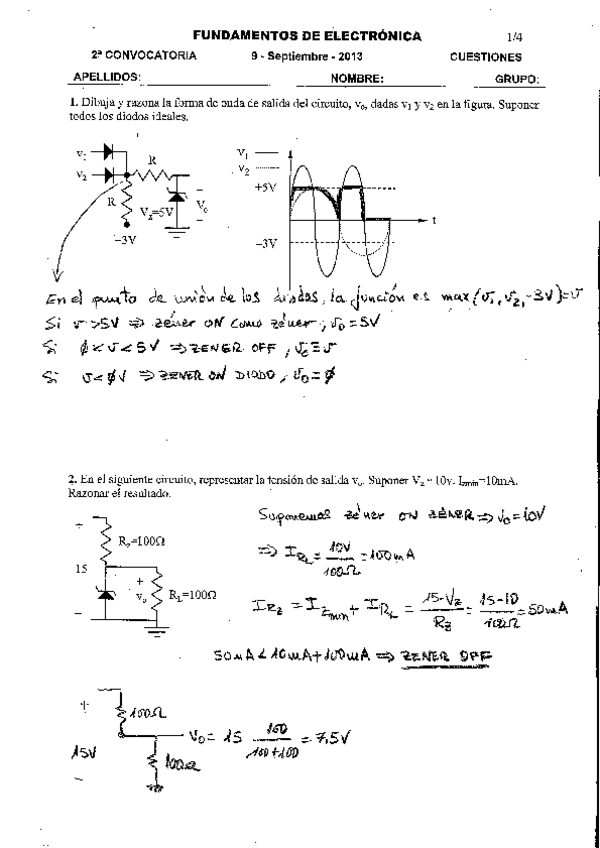 FUNDAMENTOS DE ELECTRÓNICA 1/4
2ª CONVOCATORIA 9 - Septiembre - 2013 CUESTIONES
APELLIDOS: NOMBRE: GRUPO:
1. Dibuja y razona la forma de onda de salida del circuito, vo, dadas v1 y v2 en la figura. Suponer
todos los diodos ideales.
v1
v2
R
R
Vz=5V
Vo
−3V
v1
v2
+5V
−3V
t
En el punto de unión de los diodos, la función es max(v1, v2, -3V)=v
Si v>5V ⇒ zéner ON como zéner; vo=5V
Si ϕ<v<5V ⇒ ZENER OFF, vo≡v
Si v<ϕV ⇒ ZENER ON DIODO, vo=ϕ
2. En el siguiente circuito, representar la tensión de salida vo. Suponer Vz = 10v. Izmin=10mA.
Razonar el resultado.
Suponemos zéner ON ZÉNER ⇒ vo=10V
+
Rz=100Ω
15
+
vo
RL=100Ω
−
⇒ IRL = 10V/100Ω = 100mA
IRZ = Izmin + IRL = 15-Vz/Rz = 15-10/100Ω = 50mA
50mA < 10mA+100mA ⇒ ZENER OFF
+
100Ω
15V
100Ω
−
vo = 15 100/100+100 = 7,5V